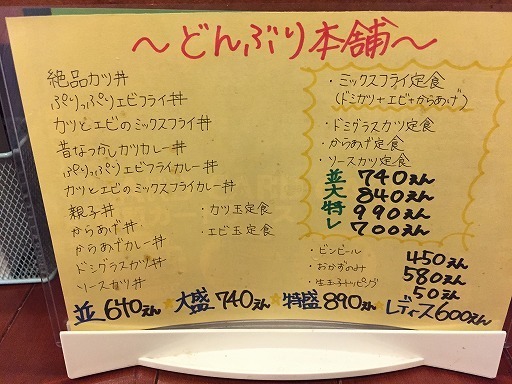 ～どんぶり本舗～
絶品カツ丼
ぷりっぷりエビフライ丼
カツとエビのミックスフライ丼
昔なつかしカツカレー丼
ぷりっぷりエビフライカレー丼
カツとエビのミックスフライカレー丼
親子丼
からあげ丼
からあげカレー丼
ドミグラスカツ丼
ソースカツ丼
・カツ玉定食
・エビ玉定食
・ミックスフライ定食
(ドミカツ+エビ+からあげ)
・ドミグラスカツ定食
・からあげ定食
・ソースカツ定食
並 740えん
大 840えん
特 990えん
レ 700えん
・ビンビール 450えん
・おかずのみ 580えん
・生玉子トッピング 50えん
並640えん 大盛740えん 特盛890えん レディース600えん